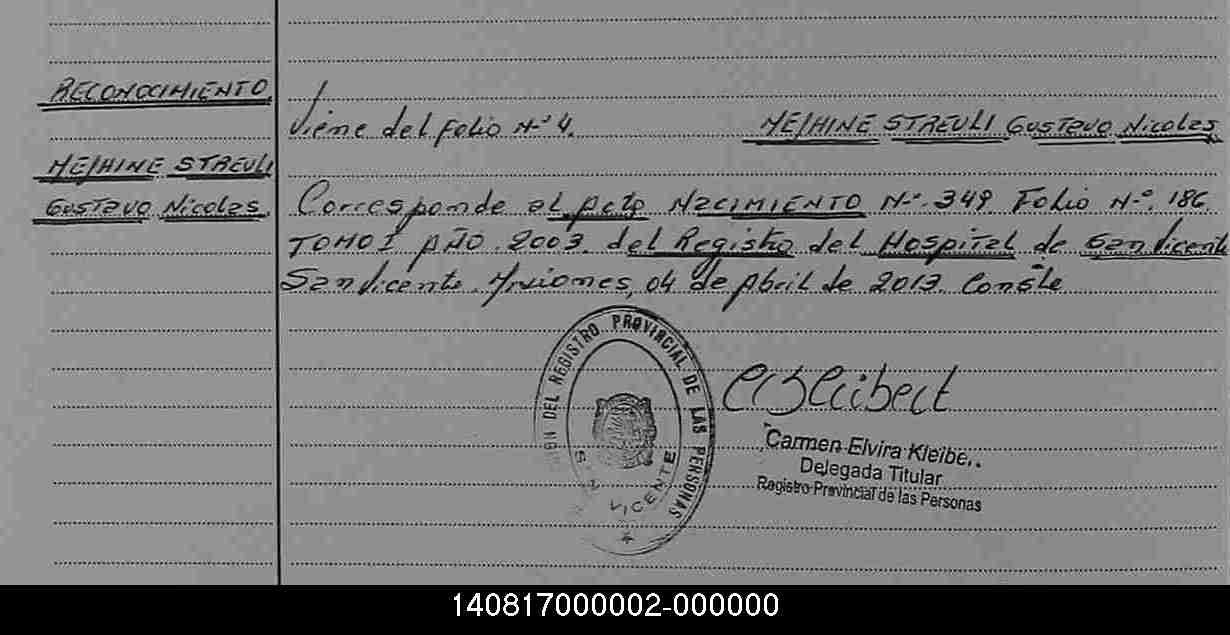 RECONOCIMIENTO
Viene del Folio N-º 4. MESHINE STREULI GUSTAVO Nicolas
MESHINE STREULI
GUSTAVO Nicolas.
Corresponde al Acta NACIMIENTO N-º. 349. Folio N-º. 186.
TOMO I AÑO. 2003. del Registro del HOSPITAL de San Vicente
San Vicente. Misiones, 04 de Abril de 2013. Conste
DEL REGISTRO PROVINCIAL DE LAS PERSONAS
SAN VICENTE
Carmen Elvira Kleibe
Delegada Titular
Registro Provincial de las Personas
140817000002-000000